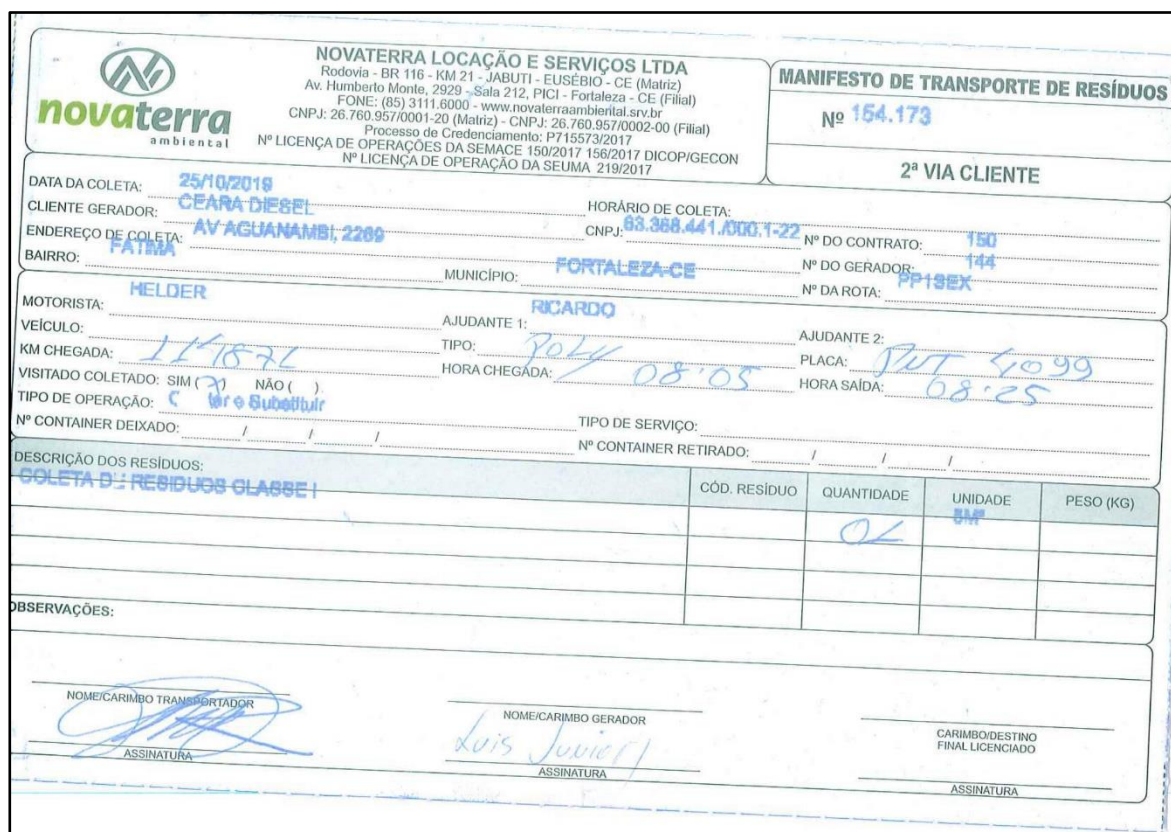 novaterra
ambiental
NOVATERRA LOCAÇÃO E SERVIÇOS LTDA
Rodovia - BR 116 - KM 21 - JABUTI - EUSÉBIO - CE (Matriz)
Av. Humberto Monte, 2929 - Sala 212, PICI - Fortaleza - CE (Filial)
FONE: (85) 3111.6000 - www.novaterraambiental.srv.br
CNPJ: 26.760.957/0001-20 (Matriz) - CNPJ: 26.760.957/0002-00 (Filial)
Processo de Credenciamento: P715573/2017
Nº LICENÇA DE OPERAÇÕES DA SEMACE 150/2017 156/2017 DICOP/GECON
Nº LICENÇA DE OPERAÇÃO DA SEUMA 219/2017
MANIFESTO DE TRANSPORTE DE RESÍDUOS
Nº 154.173
2ª VIA CLIENTE
DATA DA COLETA: 25/10/2019 HORÁRIO DE COLETA:
CLIENTE GERADOR: CEARA DIESEL CNPJ: 63.388.441./000.1-22 Nº DO CONTRATO: 150
ENDEREÇO DE COLETA: AV AGUANAMBI, 2269 Nº DO GERADOR: 144
BAIRRO: FATIMA MUNICÍPIO: FORTALEZA-CE Nº DA ROTA: PP1SEX
MOTORISTA: HELDER AJUDANTE 1: RICARDO AJUDANTE 2:
VEÍCULO: TIPO: POLY PLACA: 4099
KM CHEGADA: HORA CHEGADA: 08:05 HORA SAÍDA: 08:25
VISITADO COLETADO: SIM ( ) NÃO ( )
TIPO DE OPERAÇÃO: e Substituir TIPO DE SERVIÇO:
Nº CONTAINER DEIXADO: / / / Nº CONTAINER RETIRADO: / / /
DESCRIÇÃO DOS RESÍDUOS: CÓD. RESÍDUO QUANTIDADE UNIDADE PESO (KG)
COLETA DE RESIDUOS CLASSE I 5M³
OBSERVAÇÕES:
NOME/CARIMBO TRANSPORTADOR
NOME/CARIMBO GERADOR
CARIMBO/DESTINO
FINAL LICENCIADO
Luis Junior
ASSINATURA
ASSINATURA
ASSINATURA